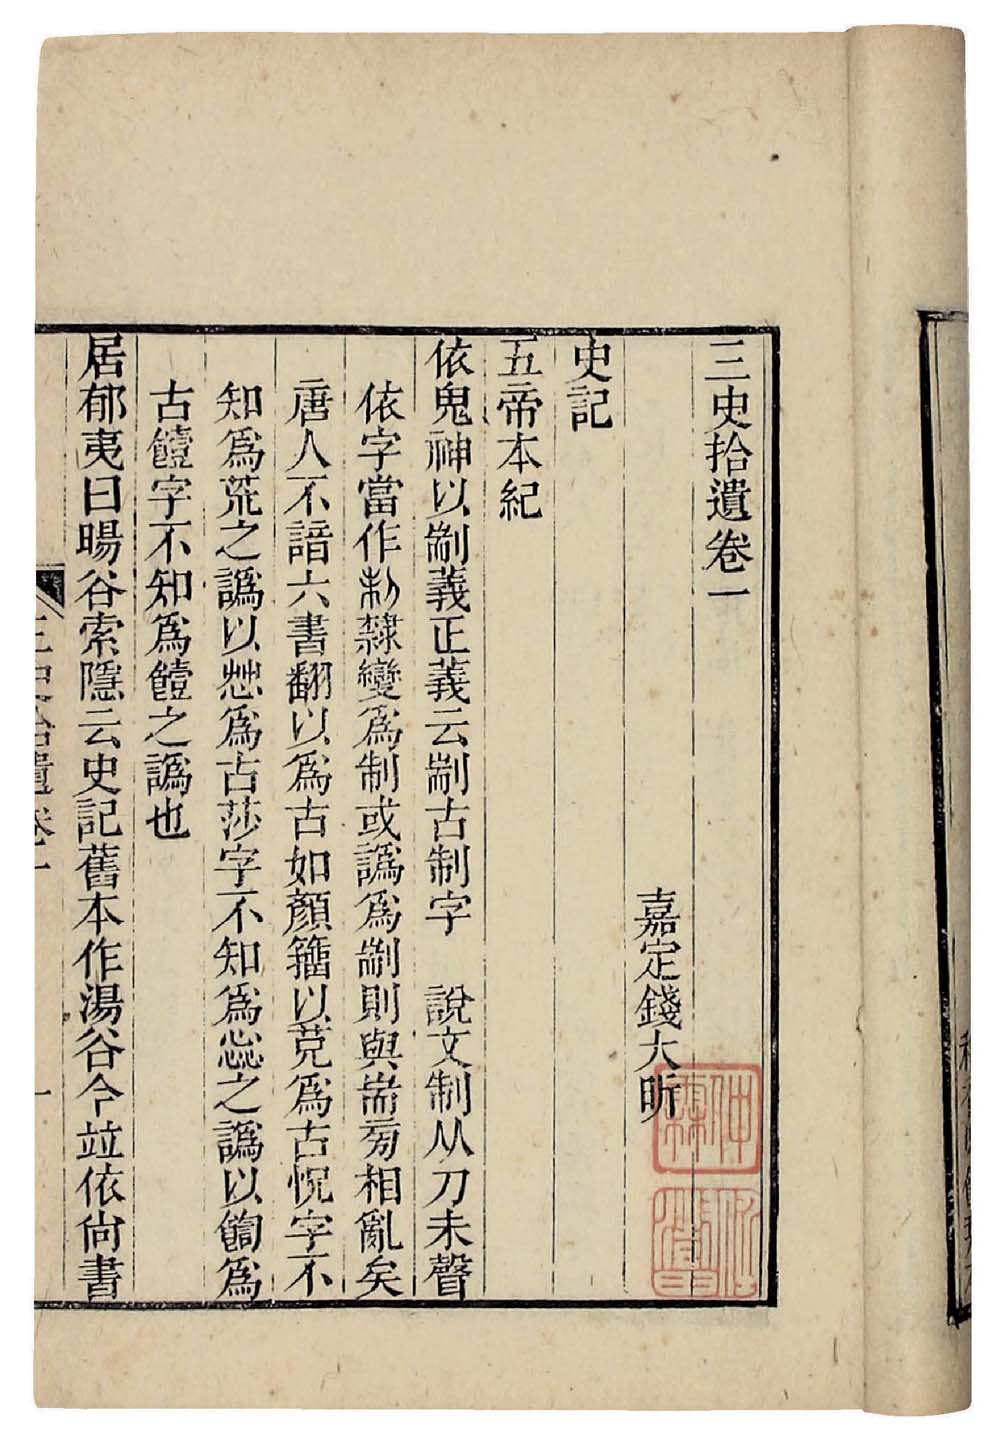 三史拾遺卷一
嘉定錢大昕
史記
五帝本紀
依鬼神以剬義正義云剬古制字　說文制从刀未聲
依字當作𣂺隸變爲制或譌爲剬則與耑㫄相亂矣
唐人不諳六書翻以爲古如顏籀以䒮爲古怳字不
知爲𠅙之譌以惢爲古莎字不知爲惢之譌以餇爲
古饐字不知爲饐之譌也
居郁夷曰暘谷索隱云史記舊本作湯谷今竝依尙書
三史拾遺卷一
一